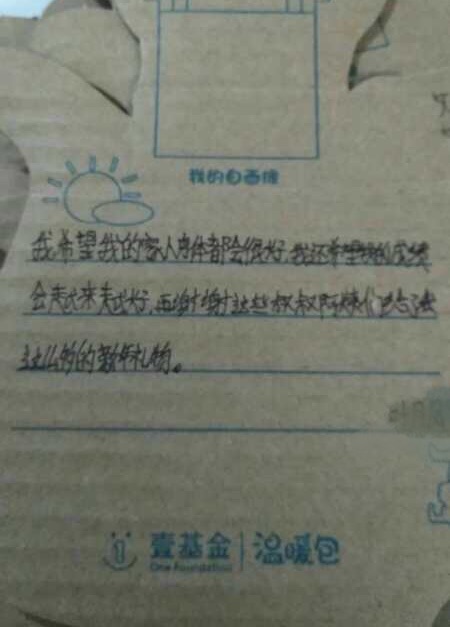 我的自画像
我希望我的家人身体都会很好,我还希望我的成绩
会越来越好,再谢谢这些叔叔阿姨们给了我
这么多的新年礼物。
壹基金 温暖包
One Foundation